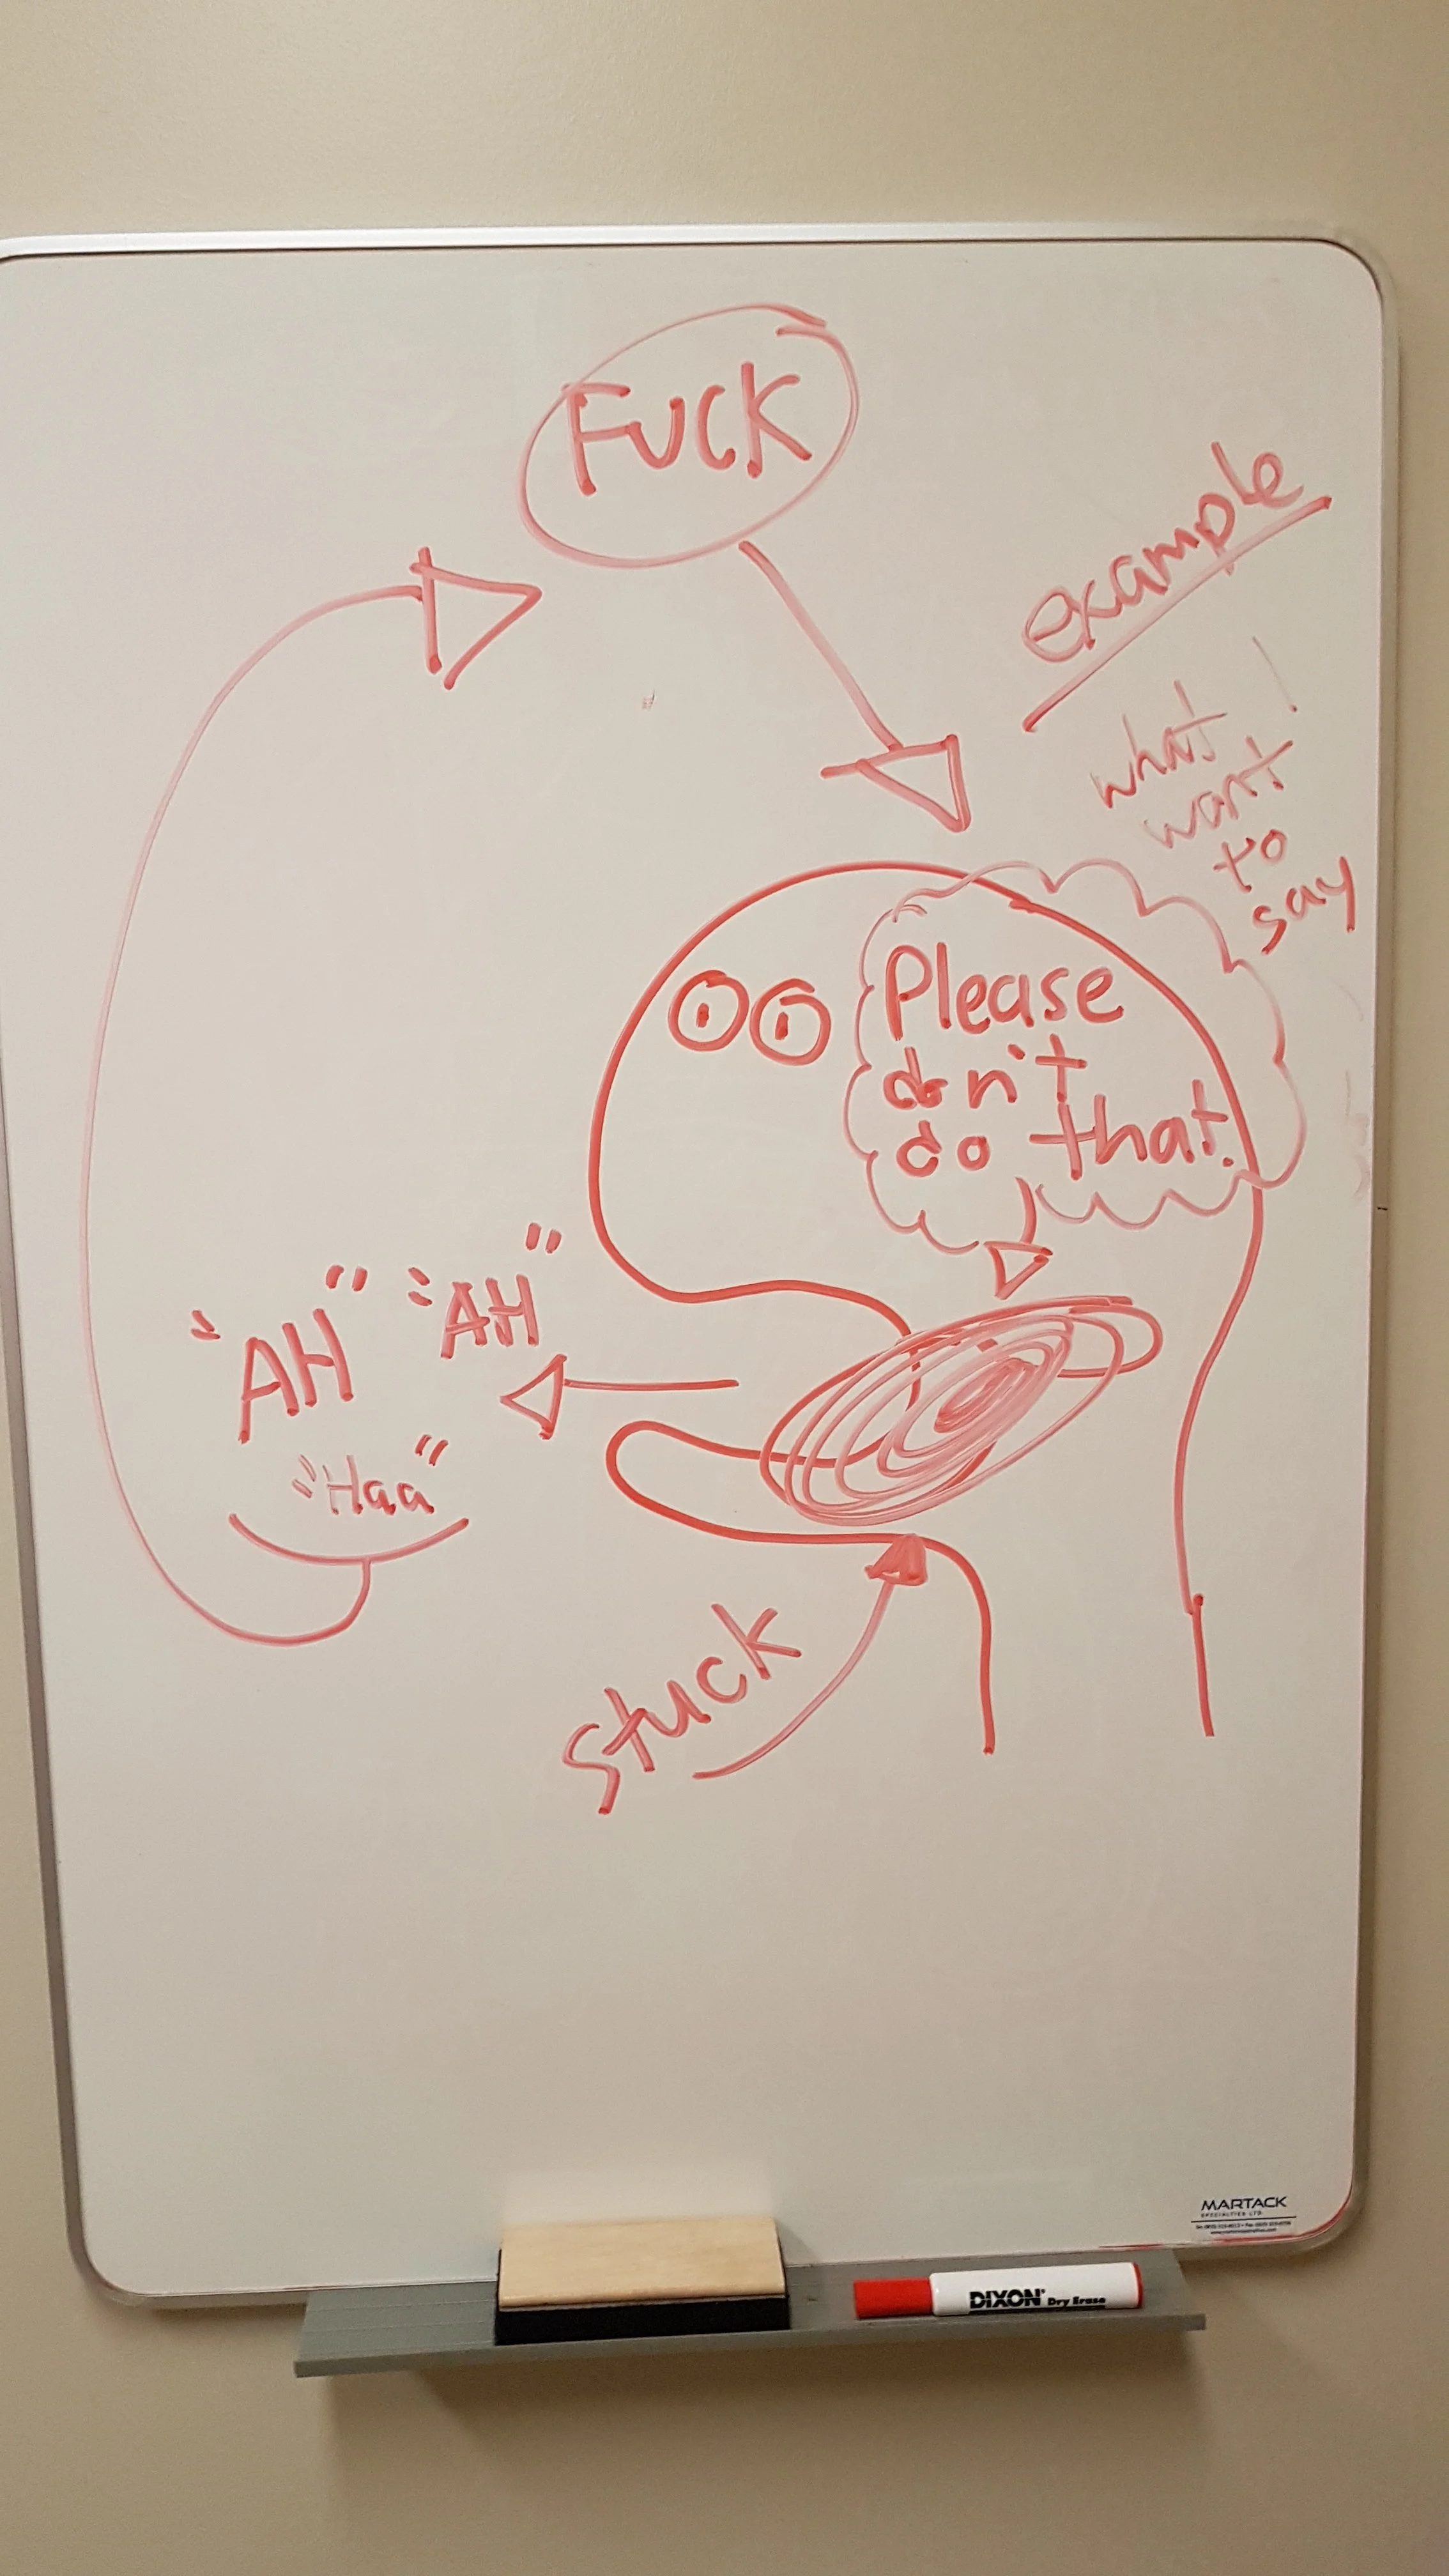 FUCK
example
what I
want
to
say
Please
don't
do that.
"AH" "AH"
"Haa"
Stuck
MARTACK
SPECIALTIES LTD.
DIXON Dry Erase